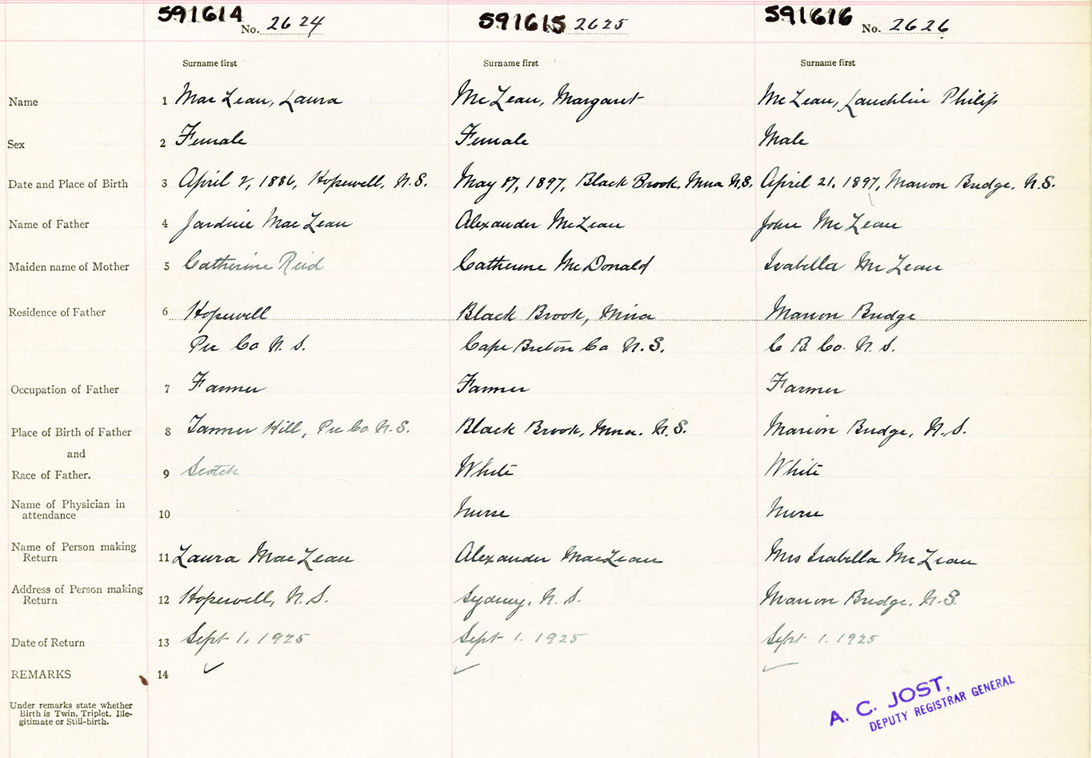 591614 No. 2624 591615 No. 2625 591616 No. 2626
Surname first Surname first Surname first
Name 1 MacLean, Laura McLean, Margaret McLean, Lauchlin Philip
Sex 2 Female Female Male
Date and Place of Birth 3 April 2, 1886, Hopewell, N.S. May 1897, Black Brook, Mira N.S. April 21, 1897, Marion Bridge, N.S.
Name of Father 4 Jardine MacLean Alexander McLean John McLean
Maiden name of Mother 5 Catherine Reid Catherine McDonald Isabella McLean
Residence of Father 6 Hopewell Black Brook, Mira Marion Bridge
Pic Co N.S. Cape Breton Co N.S. C B. Co. N.S.
Occupation of Father 7 Farmer Farmer Farmer
Place of Birth of Father 8 Hill, Pic Co N.S. Black Brook, Mira. N.S. Marion Bridge, N.S.
and
Race of Father. 9 Scotch White White
Name of Physician in
attendance 10 Nurse Nurse
Name of Person making
Return 11 Laura MacLean Alexander MacLean Mrs Isabella McLean
Address of Person making
Return 12 Hopewell, N.S. Sydney, N.S. Marion Bridge, N.S.
Date of Return 13 Sept 1, 1925 Sept 1, 1925 Sept 1. 1925
REMARKS 14
Under remarks state whether
Birth is Twin, Triplet, Ille-
gitimate or Still-birth.
A. C. JOST,
DEPUTY REGISTRAR GENERAL